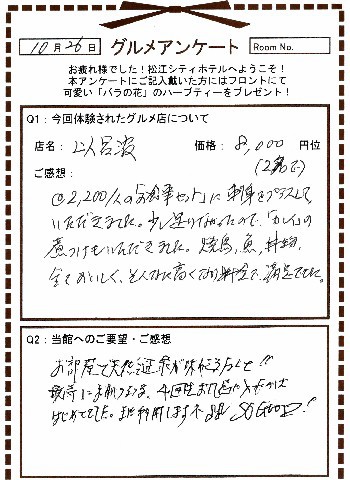 10月26日 グルメアンケート Room No.
お疲れ様でした！松江シティホテルへようこそ！
本アンケートにご記入戴いた方にはフロントにて
可愛い「バラの花」のハーブティーをプレゼント！
Q1：今回体験されたグルメ店について
店名： 価格： 8,000 円位
(2名で)
ご感想：
@2,200/人の「お食事セット」に刺身をプラスして
いただきました。少し足りなかったので、「カレイ」の
煮つけもいただきました。焼鳥、魚、
全ておいしく、そんなに高くない料金で、満足でした。
Q2：当館へのご要望・ご感想
お部屋で天然温泉が味わえるなんて!!
はじめてでした。また利用します